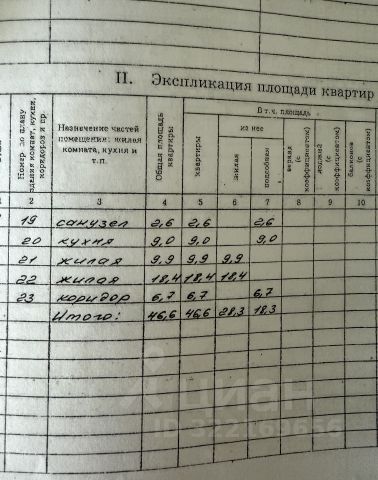 II. Экспликация площади квартир
Номер по плану
здания комнат, кухни,
коридоров и пр.
Назначение частей
помещения: жилая
комната, кухня и
т.п.
Общая площадь
квартиры
В т. ч. площадь
квартиры
из нее
жилая
подсобная
веранд
(с
коэффициентом)
лоджий
(с
коэффициентом)
балконов
(с
коэффициентом)
2 3 4 5 6 7 8 9 10
19 санузел 2,6 2,6 2,6
20 кухня 9,0 9,0 9,0
21 жилая 9,9 9,9 9,9
22 жилая 18,4 18,4 18,4
23 коридор 6,7 6,7 6,7
Итого: 46,6 46,6 28,3 18,3
циан